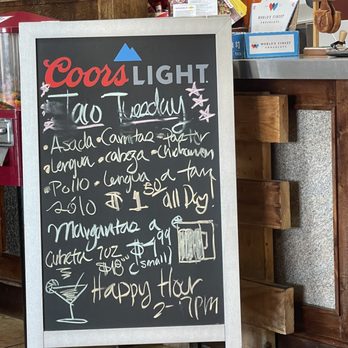 WORLD'S FINEST
CHOCOLATE
WORLD'S FINEST
Coors LIGHT
Taco Tuesday
• Asada • Carnitas • Pastor
• Lengua • cabeza • Chicharron
• Pollo • Lengua a Tay
Solo $1.50 all Day!
Margaritas a
$7.99
Cubeta 7oz
(small)
Happy Hour
2-7PM